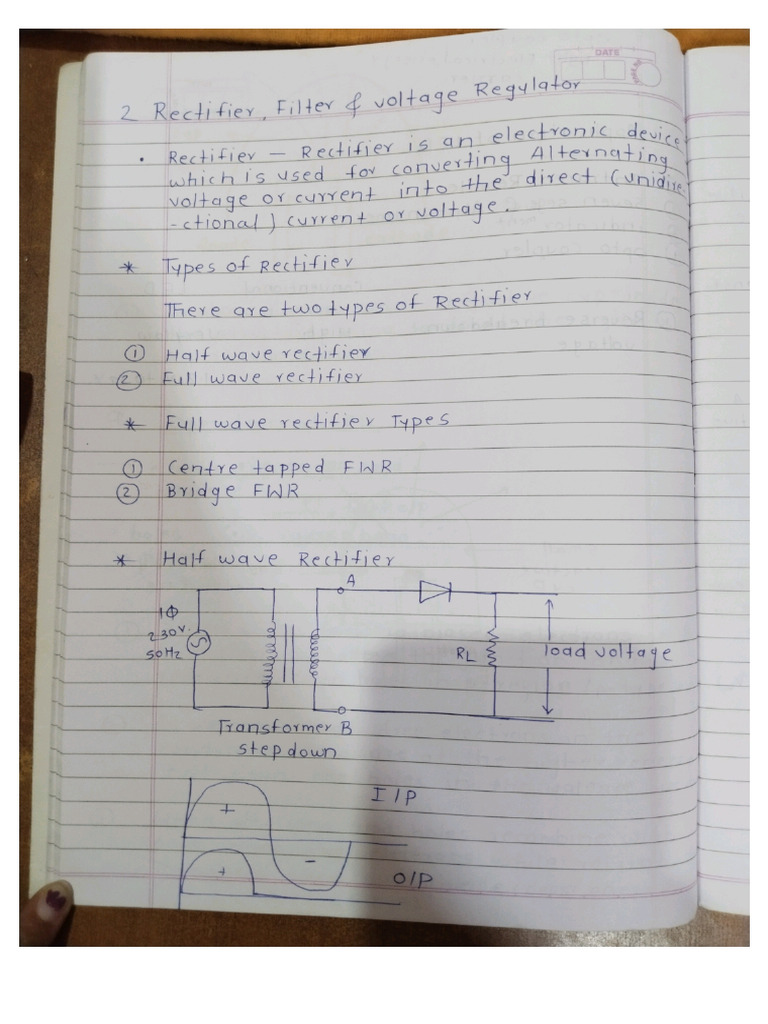 DATE
2 Rectifier, Filter & voltage Regulator
• Rectifier — Rectifier is an electronic device
which is used for converting Alternating
voltage or current into the direct (unidire-
-ctional) current or voltage.
* Types of Rectifier
There are two types of Rectifier
① Half wave rectifier
② Full wave rectifier
* Full wave rectifier Types
① Centre tapped FWR
② Bridge FWR
* Half wave Rectifier
A
1Φ
230V.
50Hz
RL
load voltage
Transformer B
step down
I/P
+
-
+
O/P